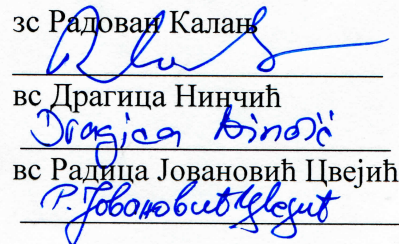 зс Радован Калањ
вс Драгица Нинчић
Dragica Ninčić
вс Радица Јовановић Цвејић
Р. Јовановић Цвејић